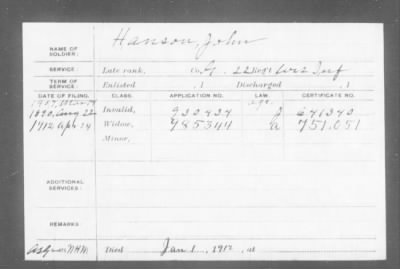 Hanson, John
NAME OF SOLDIER:
SERVICE: Late rank, Co. G. 22 Reg't Wis Inf
TERM OF SERVICE: Enlisted , 1 Discharged , 1
DATE OF FILING. CLASS. APPLICATION NO. LAW. CERTIFICATE NO.
1907, Mar
age.
1890, Aug 22 Invalid, 930434 J 641340
1912 Apr 24 Widow, 985344 a 751.051
Minor,
ADDITIONAL SERVICES:
REMARKS:
Died Jan 1, 1912, at